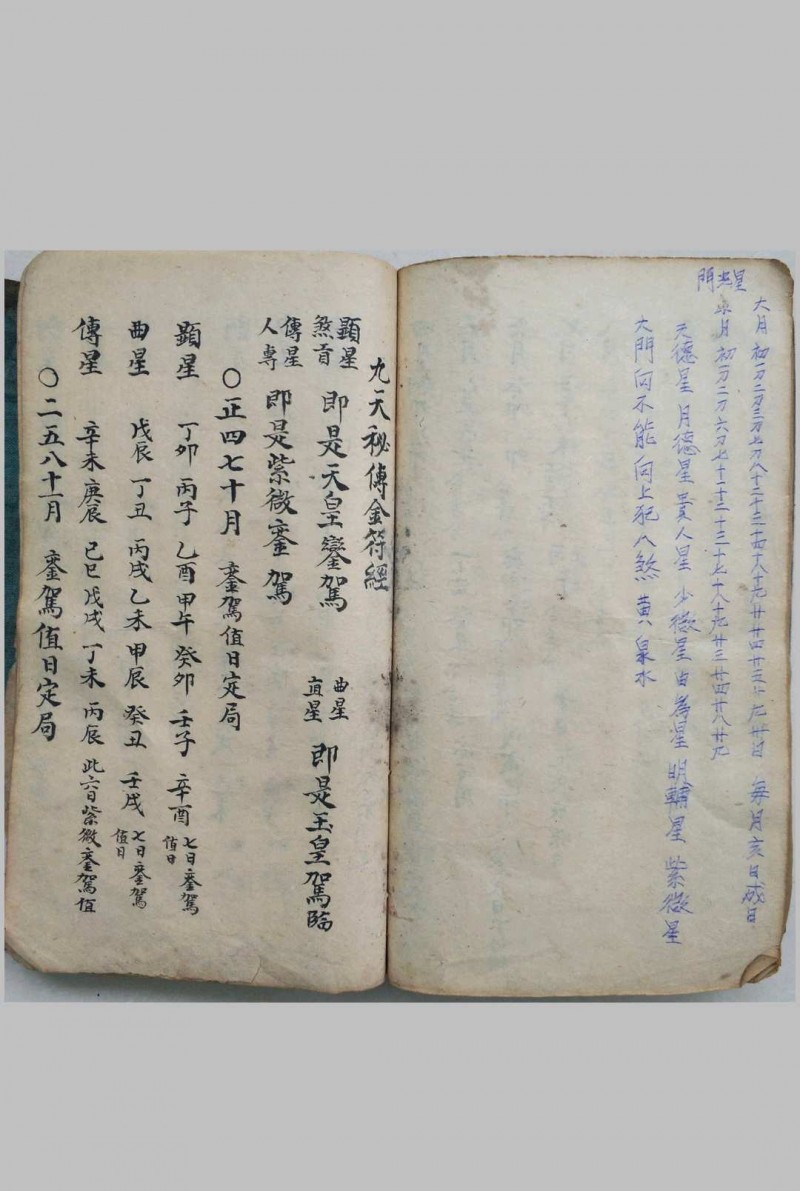 門光星
大月 初一初二初三初七初八十二十三十四十八十九廿廿四廿五廿九卅日 每月亥日成日
小月 初一初二初六初七十一十二十三十七十八十九廿三廿四廿八廿九
天德星 月德星 貴人星 少微星 由孝星 明輔星 紫微星
大門向不能向上犯八煞黄泉水
九天秘傳金符經
顯星 煞貢 即是天皇鑾駕 曲星 直星 即是玉皇駕臨
傳星 人專 即是紫微鑾駕
〇正四七十月 鑾駕值日定局
顯星 丁卯 丙子 乙酉 甲午 癸卯 壬子 辛酉 七日鑾駕值日
曲星 戊辰 丁丑 丙戌 乙未 甲辰 癸丑 壬戌 七日鑾駕值日
傳星 辛未 庚辰 己巳 戊戌 丁未 丙辰 此六日紫微鑾駕值
〇二五八十一月 鑾駕值日定局